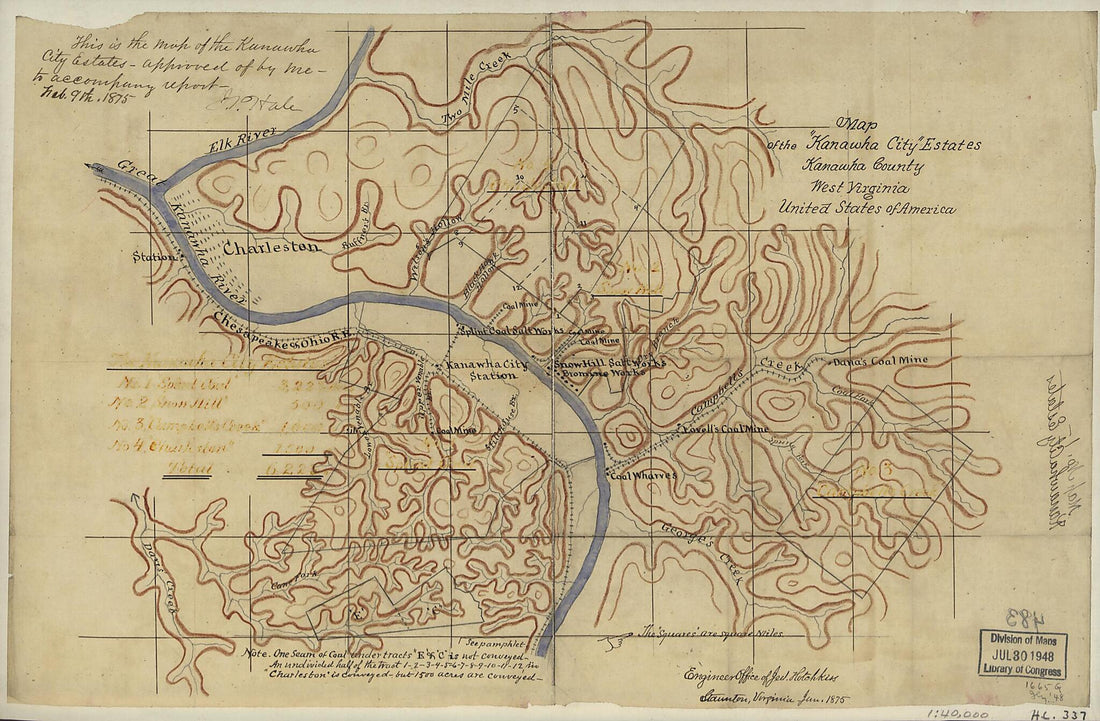 This is the map of the Kanawha
City Estates - approved of by me -
to accompany report -
Feb. 9th. 1875
J P Hale
Map
of the "Kanawha City" Estates
Kanawha County
West Virginia
United States of America
Elk River
Two Mile Creek
Great
Kanawha River
Charleston
Station
Ruffner's Br.
Wilson's Hollow
Hollow
Chesapeake & Ohio R.R.
Coal Mine
Splint Coal Salt Works
Coal Mine
Coal Mine
Snow Hill Salt Works
Bromine Works
Branch
Kanawha City
Station
Campbell's
Creek
Dana's Coal Mine
Coal Fork
Lovell's Coal Mine
Coal Mine
Coal Wharves
George's Creek
Davis Creek
Cane Fork
No. 2 Snow Hill
No. 3 Campbell's Creek
Total
5
10
11
12
3
9
No 3
"E"
"C"
The 'Squares' are square Miles.
! See pamphlet
Note. One Seam of Coal under tracts "E & C" is not conveyed-
An undivided half of the tract 1-2-3-4-5-6-7-8-9-10-11-12 in
'Charleston' is conveyed - but 1500 acres are conveyed-
Engineer Office of Jed. Hotchkiss
Staunton, Virginia Jan. 1875
Map No. 1
Kanawha City Estates
483
Division of Maps
JUL 30 1948
Library of Congress
1:40,000
H.L. 337